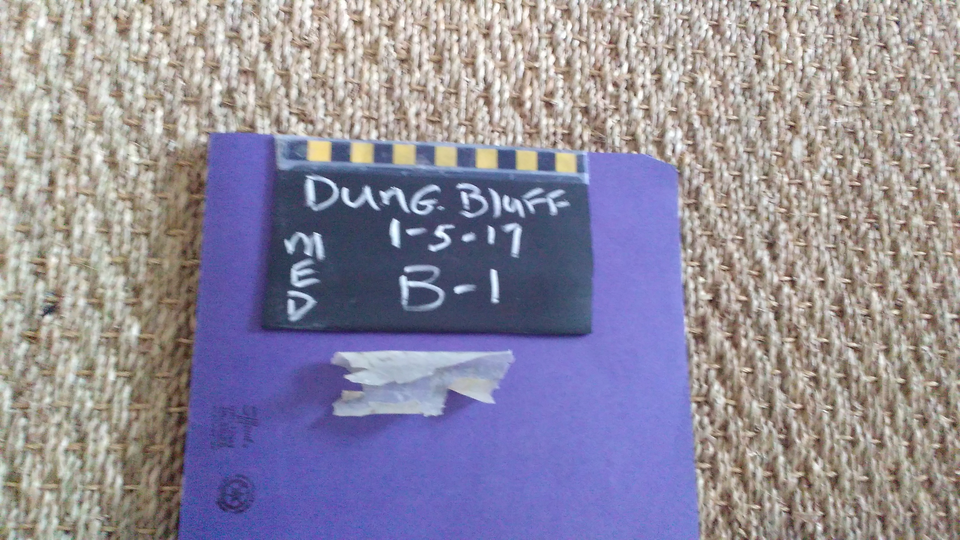 DUNG. BluFF
1-5-17
MED
B-1